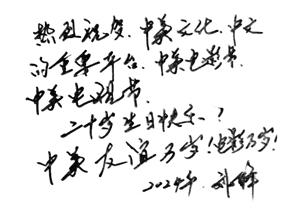 热烈祝贺,中美文化、中文
的重要平台,中美电影节、
中美电视节,
二十岁生日快乐!
中美友谊万岁!电影万岁!
2024年